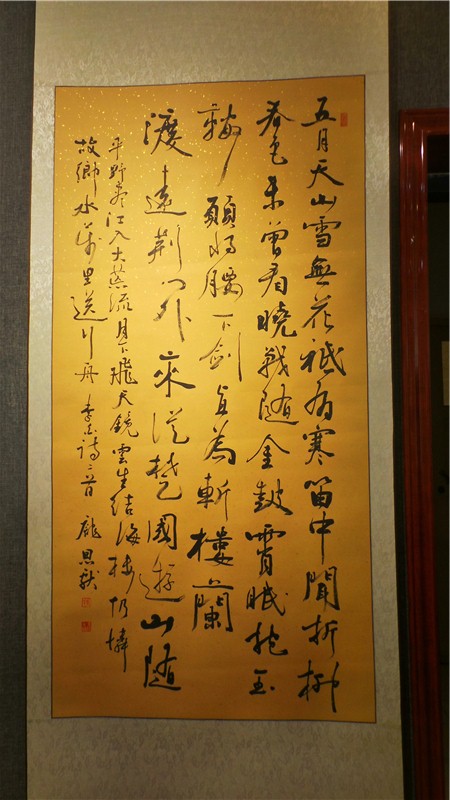 五月天山雪無花祗有寒笛中聞折柳
春色未曾看曉戰随金鼓宵眠抱玉
鞍願將腰下劍直為斬樓蘭
渡遠荊門外來從楚國遊山随
平野盡江入大荒流月下飛天鏡雲生結海楼仍憐
故鄉水萬里送行舟 李白詩二首 龐